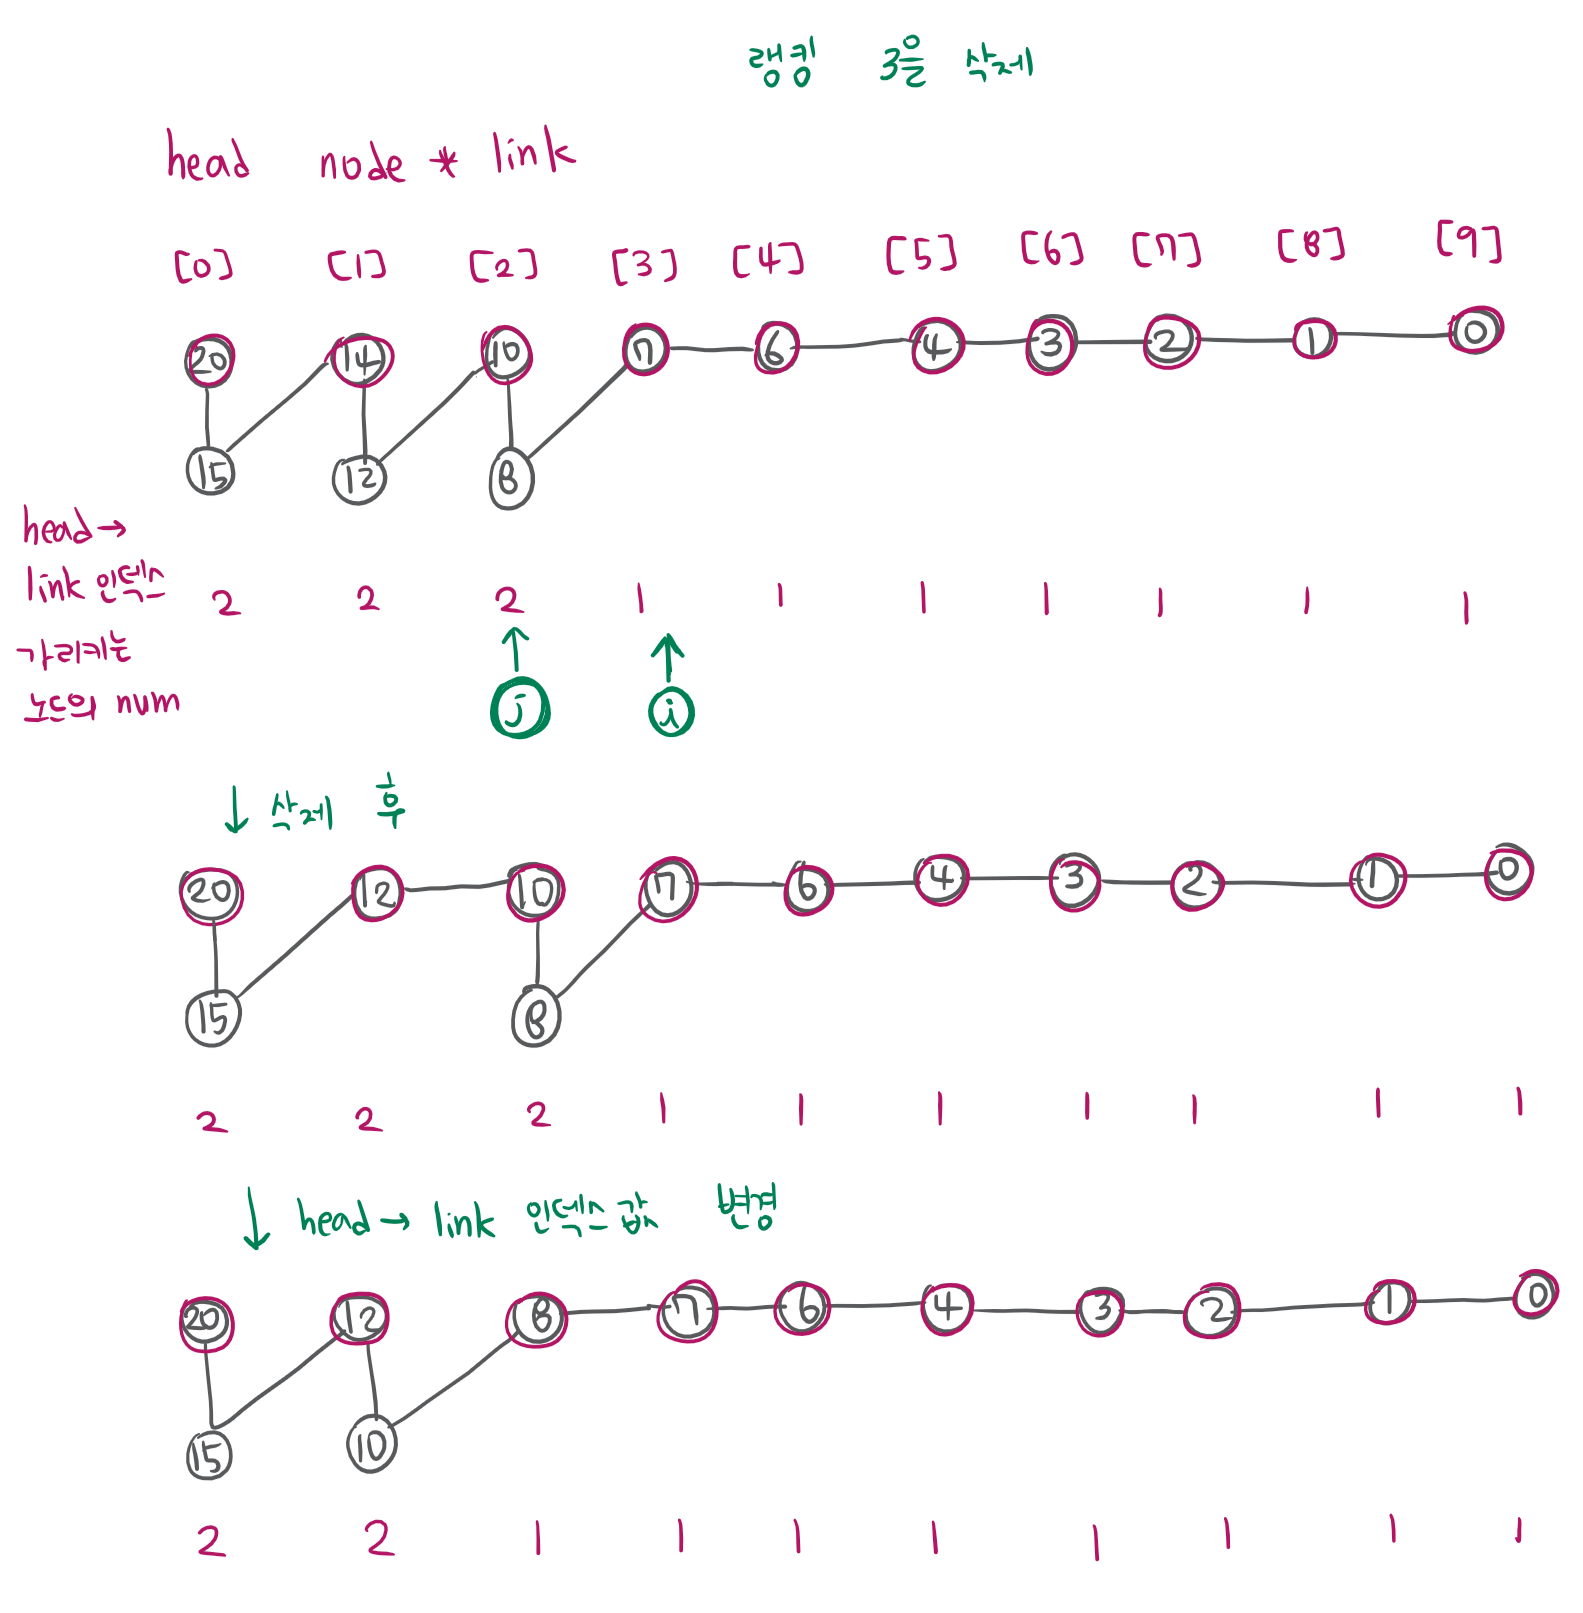 랭킹 3을 삭제
head node * link
[0] [1] [2] [3] [4] [5] [6] [7] [8] [9]
20 14 10 7 6 4 3 2 1 0
15 12 8
head→
link 인덱스
가리키는
노드의 num
2 2 2 1 1 1 1 1 1 1
j i
↓ 삭제 후
20 12 10 7 6 4 3 2 1 0
15 8
2 2 2 1 1 1 1 1 1 1
↓ head→ link 인덱스 값 변경
20 12 8 7 6 4 3 2 1 0
15 10
2 2 1 1 1 1 1 1 1 1